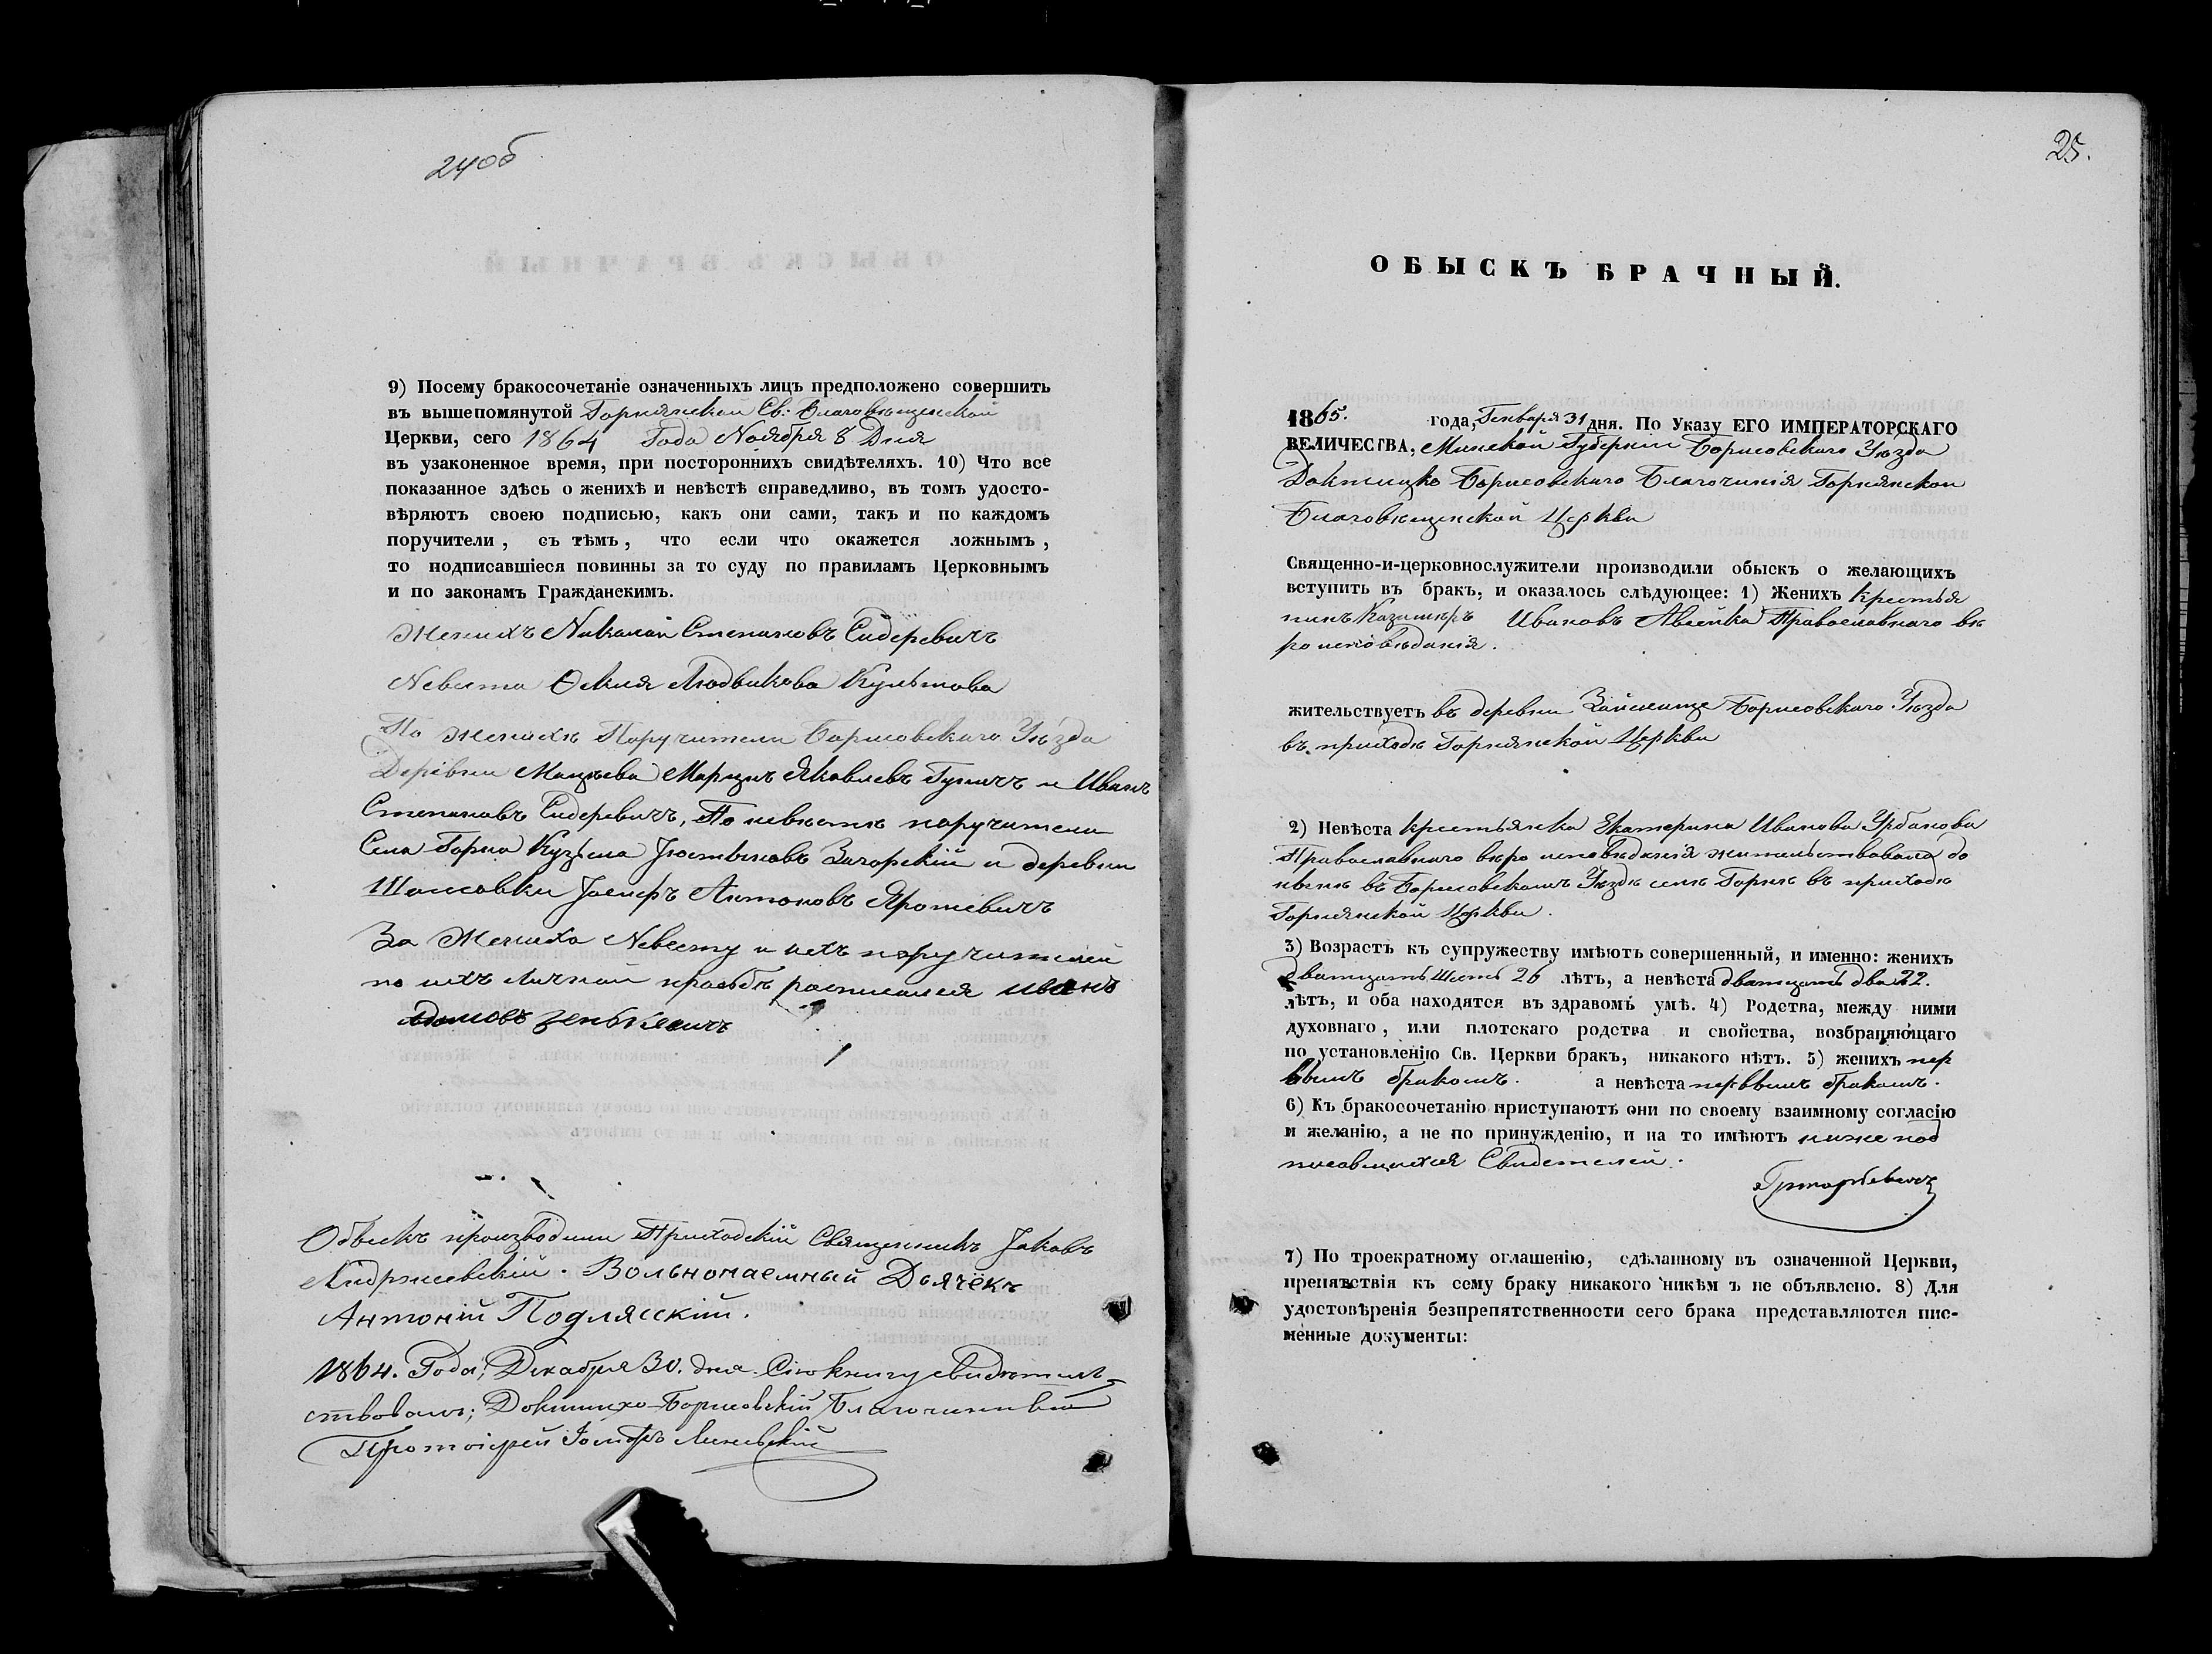 24об
9) Посему бракосочетаніе означенныхъ лицъ предположено совершить
въ вышепомянутой Горнянской Св: Благовѣщенской
Церкви, сего 1864 Года Ноября 8 Дня
въ узаконенное время, при постороннихъ свидѣтеляхъ. 10) Что все
показанное здѣсь о женихѣ и невѣстѣ справедливо, въ томъ удосто-
вѣряютъ своею подписью, какъ они сами, такъ и по каждомъ
поручители, съ тѣмъ, что если что окажется ложнымъ,
то подписавшіеся повинны за то суду по правиламъ Церковнымъ
и по законамъ Гражданскимъ.
Женихъ Николай Степановъ Сидеревичъ
Невеста Людвикова
По женихѣ Поручители Борисовскаго Уѣзда
Деревни Марцинъ Яковлевъ и Иванъ
Степановъ Сидеревичъ, По невѣстѣ поручители
Села Горна Кузьма Загорскій и деревни
Іосифъ Антоновъ
За Жениха Невесту и ихъ поручителей
по ихъ личной прозьбѣ росписался иванъ
адамовъ зенькевичъ
Обыскъ производили Приходскій Священникъ Іаковъ
Андржеевскій. Вольнонаемный Дьячёкъ
Антоній Подлясскій.
1864. Года, Декабря 30. дня. Сію книгу свидѣтель-
ствовалъ; Докшицко-Борисовскій Благочинный
Протоіерей Іосифъ
25.
ОБЫСКЪ БРАЧНЫЙ.
1865. года, Генваря 31 дня. По Указу ЕГО ИМПЕРАТОРСКАГО
ВЕЛИЧЕСТВА, Минской Губерніи Борисовскаго Уѣзда
Докшицко Борисовскаго Благочинія Горнянской
Благовѣщенской Церкви
Священно-и-церковнослужители производили обыскъ о желающихъ
вступить въ бракъ, и оказалось слѣдующее: 1) Женихъ крестья
нинъ Казимѣръ Ивановъ Авсейка Православнаго вѣ
ро исповѣданія.
жительствуетъ въ деревни Борисовскаго Уѣзда
въ приходѣ Горнянской Церкви
2) Невѣста крестьянка Екатерина Иванова Урбанова
Православнаго вѣро исповѣданія жительствовала до
нынѣ въ Борисовскомъ Уѣздѣ селѣ Горнѣ въ приходѣ
Горнянской Церкви.
3) Возрастъ къ супружеству имѣютъ совершенный, и именно: женихъ
Дватцать шесть 26 лѣтъ, а невѣста дватцать два 22.
лѣтъ, и оба находятся въ здравомъ умѣ. 4) Родства, между ними
духовнаго, или плотскаго родства и свойства, возбраняющаго
по установленію Св. Церкви бракъ, никакого нѣтъ. 5) женихъ пер
вымъ бракомъ. а невѣста первымъ бракомъ.
6) Къ бракосочетанію приступаютъ они по своему взаимному согласію
и желанію, а не по принужденію, и на то имѣютъ ниже под
писавшихся Свидетелей.
7) По троекратному оглашенію, сдѣланному въ означенной Церкви,
препятствія къ сему браку никакого никѣм ъ не объявлено. 8) Для
удостовѣренія безпрепятственности сего брака представляются пис-
менные документы: